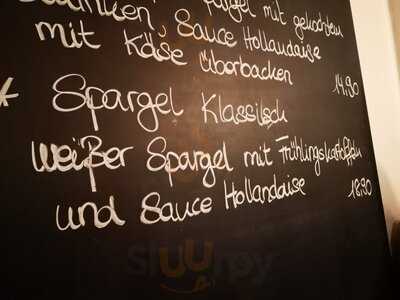 Spargel mit gekochtem
Schinken, Sauce Hollandaise
mit Käse überbacken
14,90
* Spargel Klassisch
weißer Spargel mit Frühlingskartoffeln
und Sauce Hollandaise
18.90
sluurpy